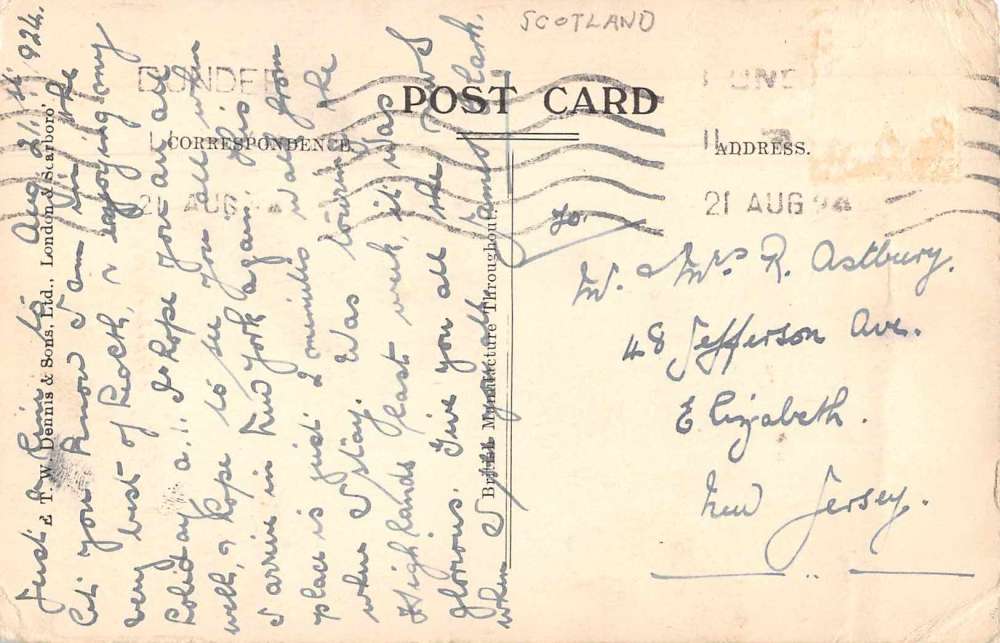 SCOTLAND
POST CARD
CORRESPONDENCE.
ADDRESS.
DUNDEE
21 AUG 24
DUNDEE
11
21 AUG 24
E. T. W. Dennis & Sons, Ltd., London & Scarboro'.
Aug 21st 924.
Just a line to
let you know I am in the
very best of health, & enjoying my
holiday a.1. I hope you are all
well, & hope to see you all when
I arrive in New York again. This
place is just 2 minutes walk from
where I stay. Was touring the
Highlands last week, it was
glorious. Give you all the news
when I you all James Clark.
British Manufacture Throughout.
To.
Mr. & Mrs R. Astbury.
48 Jefferson Ave.
Elizabeth.
New Jersey.